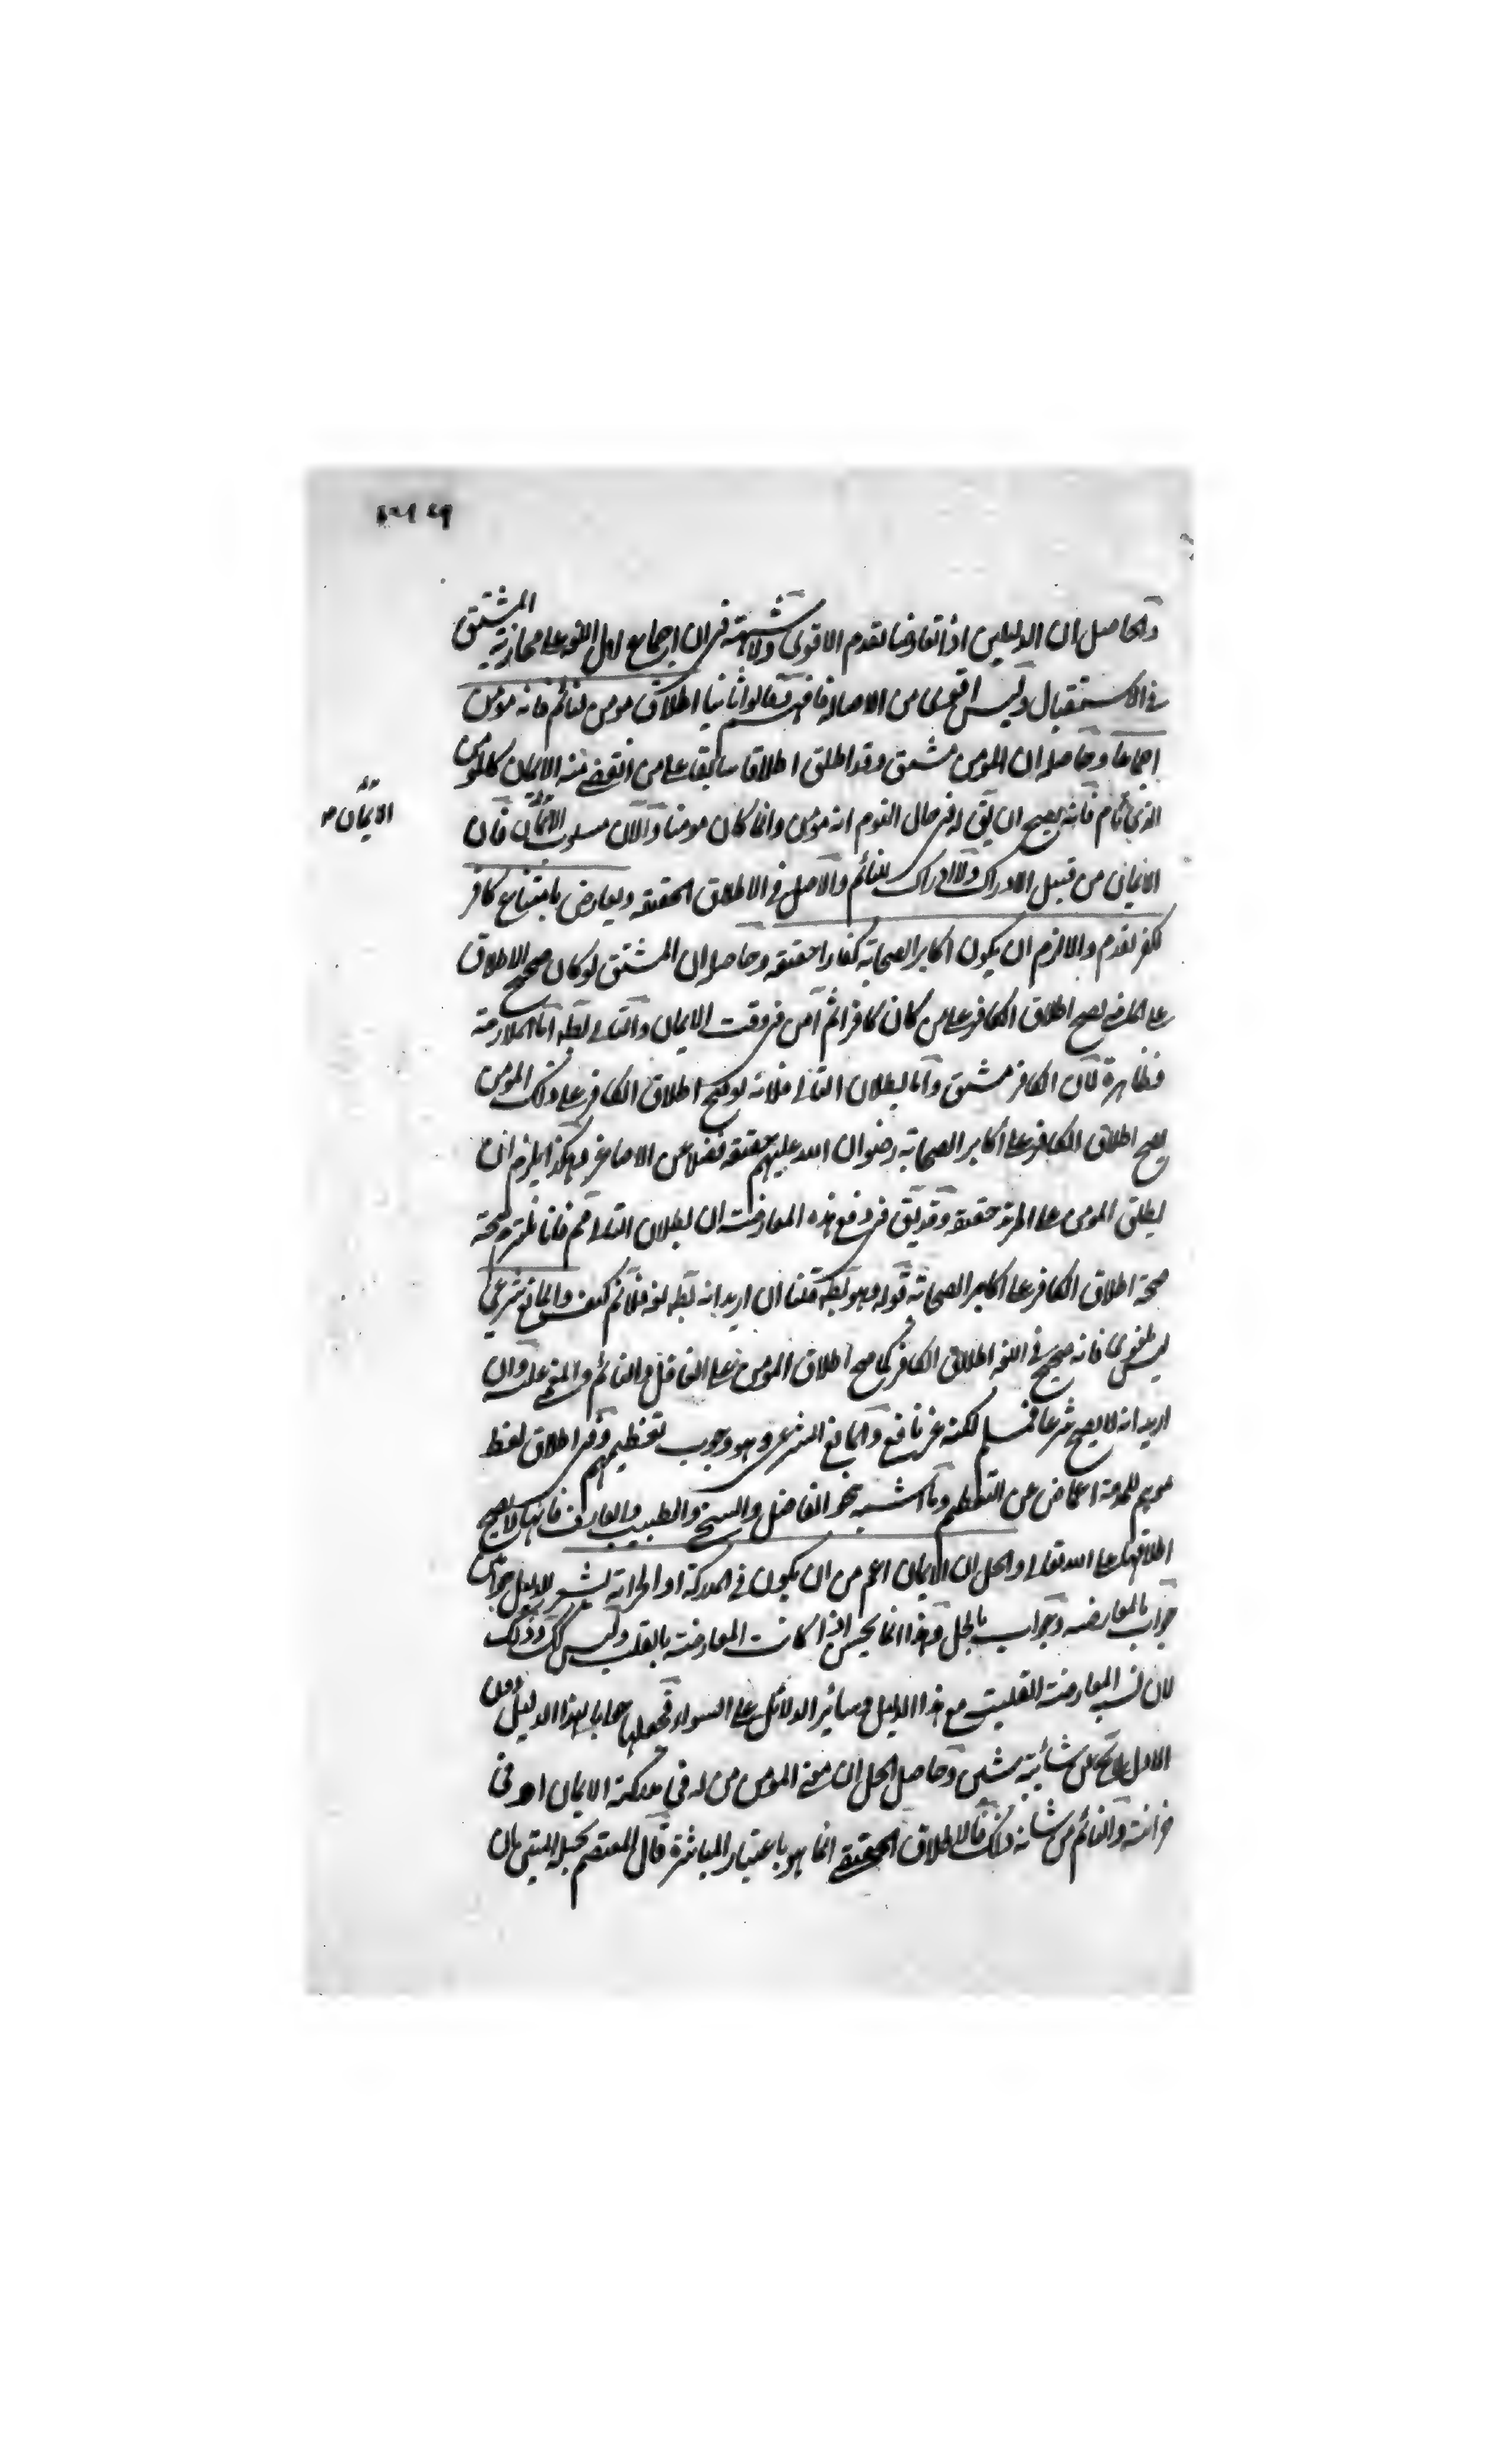 والحاصل ان الدليلين اذا تعارضا تقدم الاقوى ولا شبهة فى ان اجماع اهل اللغة على مجازية المشتق
فى الاستقبال وليس اقوى من الاصالة فافهم قالوا ثانيا اطلاق مومن لنائم فانه مؤمن
اجماعا وحاصله ان المومن مشتق وقد اطلق اطلاقا سابقا على من انقضى عنه الايمان كالمومن
الذى نام فانه يصح ان يق له فى حال النوم انه مؤمن وانما كان مومنا والآن مسلوب الايمان فان
الايمان
الايمان من قبيل الادراك ولا ادراك للنائم والاصل فى الاطلاق الحقيقة ويعارض بامتناع كافر
لكفر تقدم والا لزم ان يكون اكابر الصحابة كفارا حقيقة وحاصله ان المشتق لو كان صحيح الاطلاق
على الماضى لصح اطلاق الكافر على من كان كافرا ثم آمن فى وقت الايمان والتالى بط اما الملازمة
فظاهرة لان الكافر مشتق واما بطلان التالى فلانه لو صح اطلاق الكافر على ذلك المومن
لصح اطلاق الكافر على اكابر الصحابة رضوان الله عليهم حقيقة فضلا عن الاصاغر وهكذا يلزم ان
يطلق المومن على المرتد حقيقة وقد يق فى دفع هذه المعارضة ان بطلان التالى مم فانا نلتزم صحة
صحة اطلاق الكافر على اكابر الصحابة قوله وهو بط قلنا ان اريد انه بط لغة فلا نم كيف والمانع شرعى
ليس لغوى فانه صحيح فى اللغة اطلاق الكافر كما صح اطلاق المومن على الغافل والنائم والمغمى عليه وان
اريد انه لا يصح شرعا فمسلم لكنه غير نافع والمانع الشرعى هو وجوب تعظيمهم وفى اطلاق لفظ
موهم للمذمة اغماض عن التعظيم وما اشبه بنحو الفاضل والسخى والطبيب والعارف فانها لا يصح
اطلاقها على الله تعالى والحل ان الايمان اعم من ان يكون فى المدركة او الخزانة لدليل جوابين
جواب بالمعارضة وجواب بالحل وهذا انما يحسن اذا كانت المعارضة بالقلب وليس كك وذلك
لان نسبة المعارضة القلبية مع هذا الدليل وسائر الدلائل على السواء فجعلها جوابا لهذا الدليل دون
الاول لا يخ عن شائبة شئ وحاصل الحل ان معنى المومن من له فى مدركته الايمان او فى
خزانته والنائم من شانه ذلك فالاطلاق الحقيقى انما هو باعتبار المباشرة قال المعتصم بحبله المتين ان